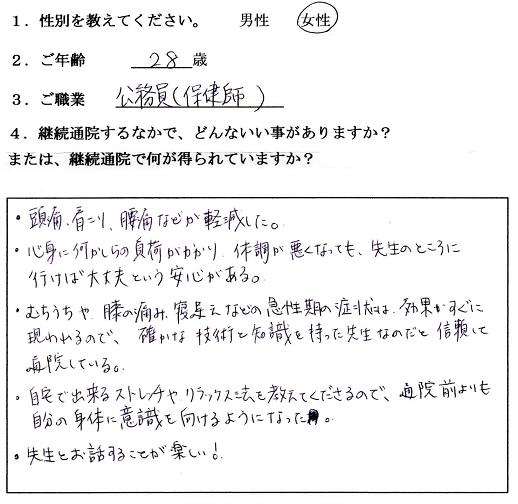 1．性別を教えてください。　男性　女性
2．ご年齢　28 歳
3．ご職業　公務員(保健師)
4．継続通院するなかで、どんないい事がありますか？
または、継続通院で何が得られていますか？
・頭痛、肩こり、腰痛などが軽減した。
・心身に何かしらの負荷がかかり、体調が悪くなっても、先生のところに
行けば大丈夫という安心がある。
・むちうちや、膝の痛み、寝違えなどの急性期の症状は、効果がすぐに
現われるので、確かな技術と知識を持った先生なのだと信頼して
通院している。
・自宅で出来るストレッチや、リラックス法を教えてくださるので、通院前よりも
自分の身体に意識を向けるようになった。
・先生とお話することが楽しい！